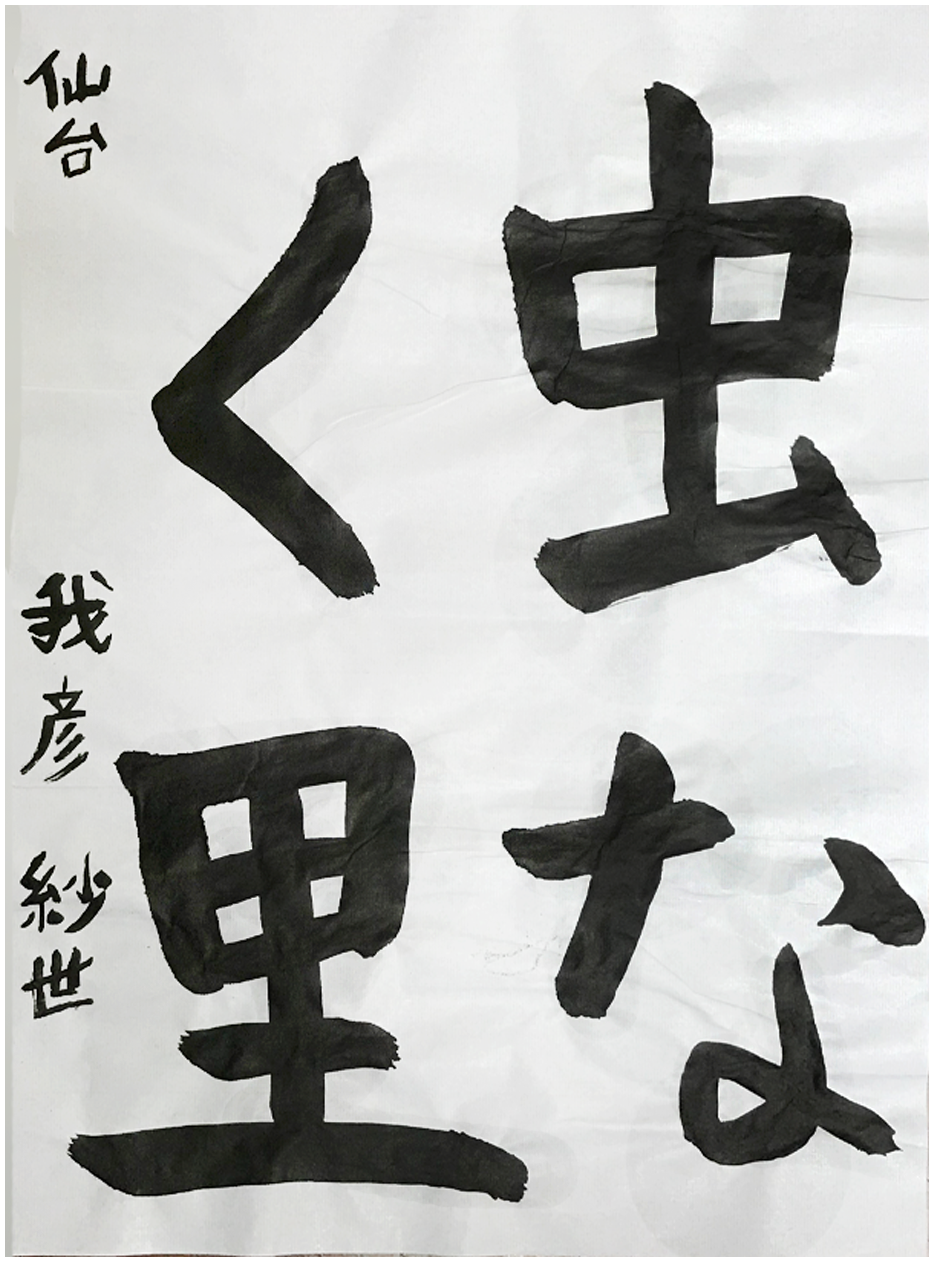 虫な
く里
仙台 我彦 紗世